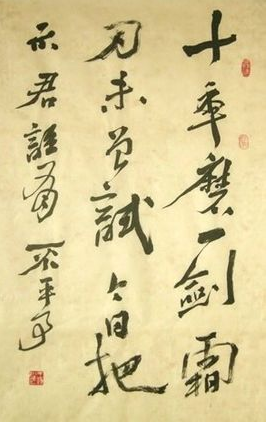 十年磨一劍霜
刃未曾試今日把
示君誰為不平事